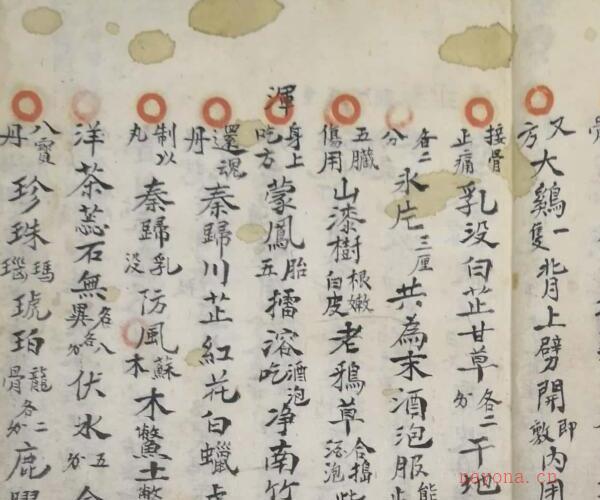 又方 大鷄一隻 背上劈開 即敷 内用
接骨止痛 乳没白芷甘草 各二分 干地
各二分 氷片 三厘 共為末酒泡服
五臟傷用 山漆樹 根嫩白皮 老鴉草 合搗 酒泡
渾身上吃方 蒙鳳胎 五 擂溶 酒泡吃 净南竹
還魂丹 秦歸川芷紅花白蠟
制以丸 秦歸 乳没 防風 蘇木 木鱉土鱉
洋茶蕊石無異 各八分 茯氷 各五分
八寶丹 珍珠 瑪瑙 琥珀 龍骨 各二分 鹿
nayona.cn